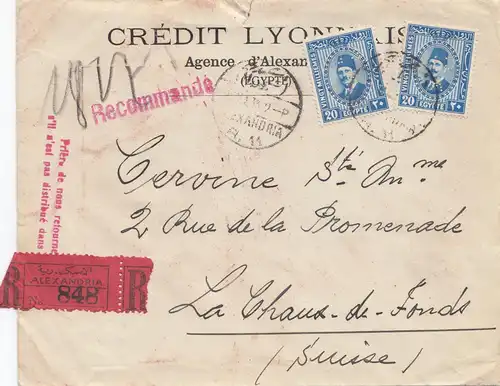 CRÉDIT LYONNAIS
Agence d'Alexan
(EGYPTE)
Recommandé
20 EGYPTE ٢٠
20 EGYPTE ٢٠
ALEXANDRIA
11
Prière de nous retourner
s'il n'est pas distribué dans
Cervine Sté An me
2 Rue de la Promenade
La Chaux-de-Fonds
(Suisse)
ALEXANDRIA
R No. 848 R